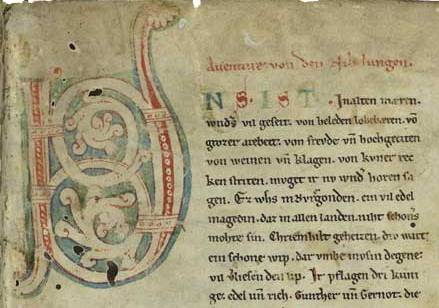 Auenture von den Nibelungen.
VNS. IST. In alten mæren.
wnd's vil geseit. von heleden lobebæren. vō
grozer arebeit. von frevde vn̄ hochgeciten
von weinen vn̄ klagen. von kvner rec
ken striten. mvget ir nv wnd' horen sa
gen. Ez whs in Bvrgonden. ein vil edel
magedin. daz in allen landen. niht schoners
mohte sin. Chriemhilt geheizen. div wart
ein schone wip. dar vmbe mvsin degene
vil v'liesen den lip. Ir pflagen dri kuni
ge. edel vn̄ rich. Gunther vn̄ Gernot. die